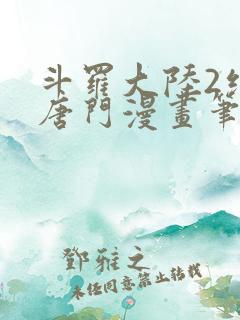 斗羅大陸2
唐門漫畫筆
鄧雅之
未經同意禁止轉載